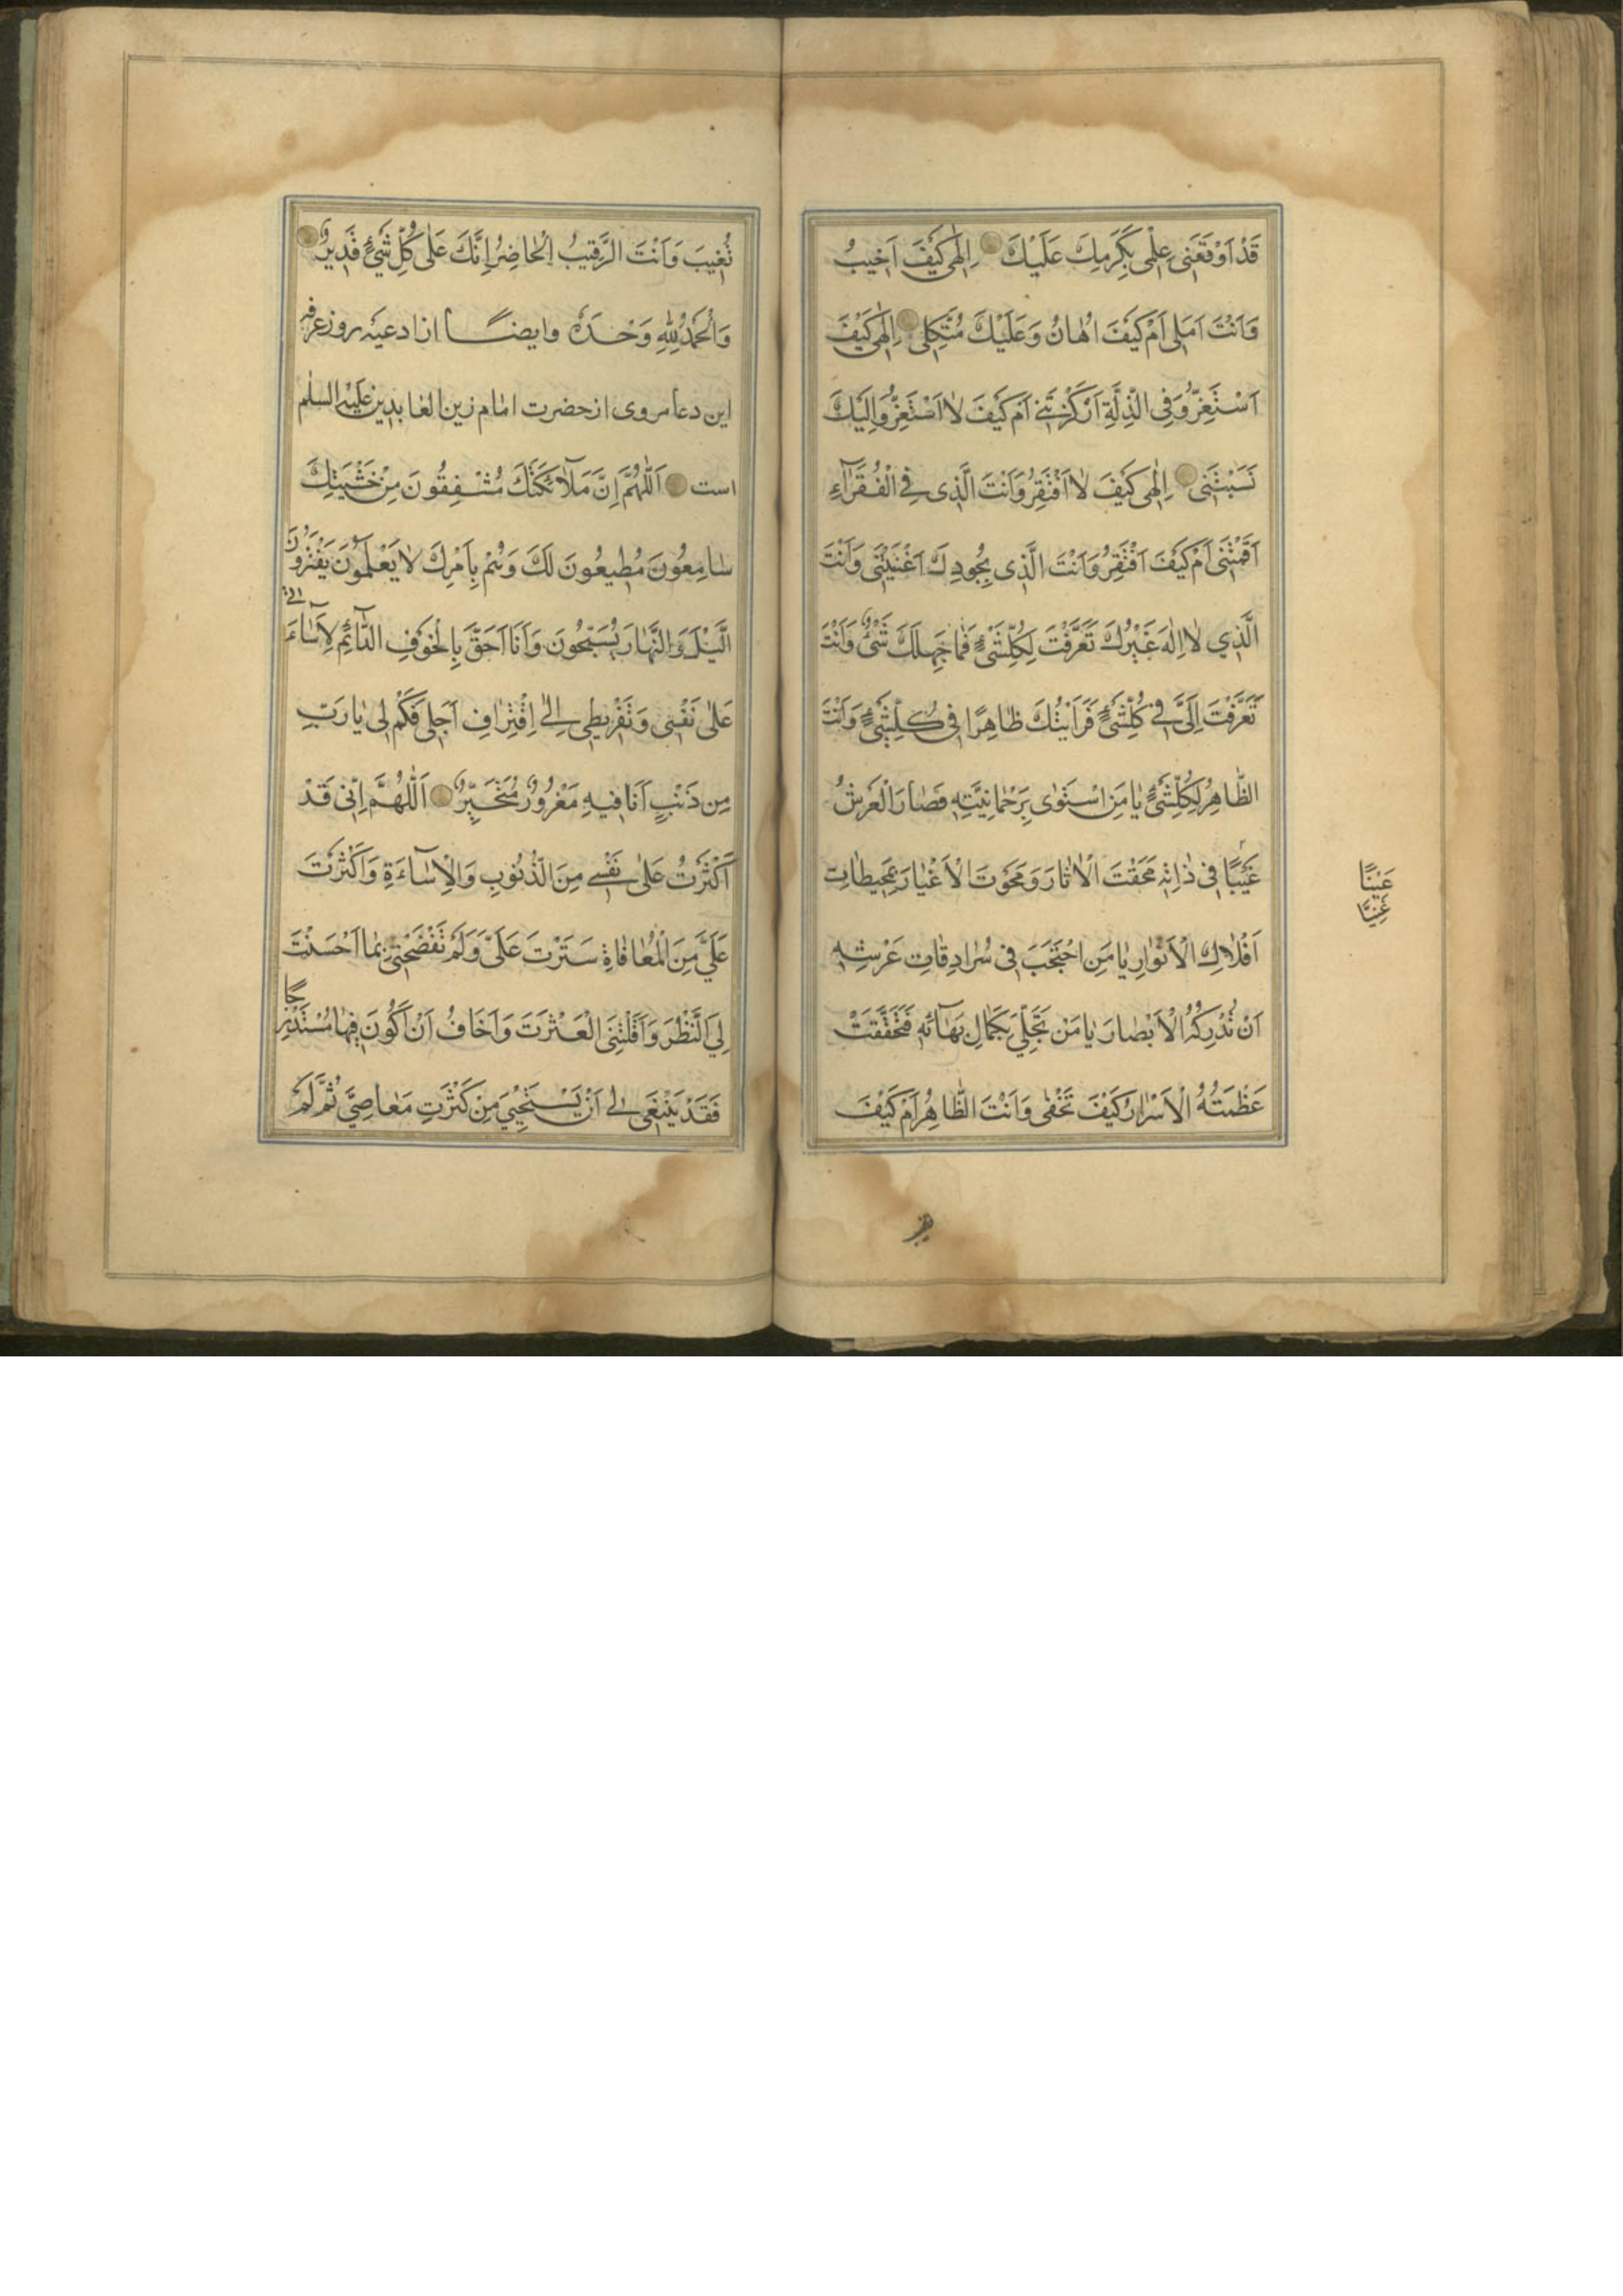 قَدْ اَوْقَعَنی عِلْمی بِكَرَمِكَ عَلَیْكَ اِلٰهی كَیْفَ اَخیبُ
وَاَنْتَ اَمَلی اَمْ كَیْفَ اُهٰانُ وَعَلَیْكَ مُتَّكِلی اِلٰهی كَیْفَ
اَسْتَعِزُّ وَفِی الذِّلَّةِ اَرْكَزْتَنی اَمْ كَیْفَ لٰا اَسْتَعِزُّ وَاِلَیْكَ
نَسَبْتَنی اِلٰهی كَیْفَ لٰا اَفْتَقِرُ وَاَنْتَ الَّذی فِی الْفُقَرٰآءِ
اَقَمْتَنی اَمْ كَیْفَ اَفْتَقِرُ وَاَنْتَ الَّذی بِجُودِكَ اَغْنَیْتَنی وَاَنْتَ
الَّذی لٰا اِلٰهَ غَیْرُكَ تَعَرَّفْتَ لِكُلِّشَیْءٍ فَمٰا جَهِلَكَ شَیْءٌ وَاَنْتَ
تَعَرَّفْتَ اِلَیَّ فی كُلِّشَیْءٍ فَرَاَیْتُكَ ظٰاهِرًا فی كُلِّشَیْءٍ وَاَنْتَ
الظّٰاهِرُ لِكُلِّشَیْءٍ یٰا مَنِ اسْتَوٰی بِرَحْمٰانِیَّتِهِ فَصٰارَ الْعَرْشُ
غَیْبًا فی ذٰاتِهِ مَحَقْتَ الْاٰثٰارَ وَمَحَوْتَ الْاَغْیٰارَ بِمُحیطٰاتِ
اَفْلٰاكِ الْاَنْوٰارِ یٰا مَنِ احْتَجَبَ فی سُرٰادِقٰاتِ عَرْشِهِ
اَنْ تُدْرِكَهُ الْاَبْصٰارَ یٰا مَنْ تَجَلّٰی بِكَمٰالِ بَهٰآئِهِ فَتَحَقَّقَتْ
عَظَمَتُهُ الْاَسْرٰارَ كَیْفَ تَخْفٰی وَاَنْتَ الظّٰاهِرُ اَمْ كَیْفَ
عَیْنًا
غَیْبًا
تغیب
تَغیبُ وَاَنْتَ الرَّقیبُ الْحٰاضِرُ اِنَّكَ عَلٰی كُلِّ شَیْءٍ قَدیرٌ
وَالْحَمْدُ لِلّٰهِ وَحْدَهُ وایضاً از ادعیهٔ روز عرفه
این دعا مروی از حضرت امام زین العابدین علیه السلم
است اَللّٰهُمَّ اِنَّ مَلٰآئِكَتَكَ مُشْفِقُونَ مِنْ خَشْیَتِكَ
سٰامِعُونَ مُطیعُونَ لَكَ وَهُمْ بِاَمْرِكَ لٰا یَعْلَمُونَ یَفْتُرُونَ
الَّیْلَ وَالنَّهٰارَ یُسَبِّحُونَ وَاَنَا اَحَقَّ بِالْخَوْفِ الدّٰآئِمِ لِاَسٰآءَتی
عَلٰی نَفْسی وَتَفْریطی اِلٰی اِقْتِرٰافِ اَجَلی فَكَمْ لی یٰا رَبِّ
مِن ذَنْبٍ اَنَا فیهِ مَغْرُورٌ مُتَحَیِّرٌ اَللّٰهُمَّ اِنّی قَدْ
اَكْثَرْتُ عَلٰی نَفْسی مِنَ الذُّنُوبِ وَالْاِسٰآءَةِ وَاَكْثَرْتَ
عَلَیَّ مِنَ الْمُعٰافٰاةِ سَتَرْتَ عَلَیَّ وَلَمْ تَفْضَحْنی بِمٰا اَحْسَنْتَ
لِیَ النَّظَرَ وَاَقَلْتَنِی الْعَثْرَتَ وَاَخٰافُ اَنْ اَكُونَ فیهٰا مُسْتَدْرِجًا
فَقَدْ یَنْبَغی لی اَنْ یَسْتَحْیِیَ مِنْ كَثْرَتِ مَعٰاصِیَّ ثُمَّ لَمْ